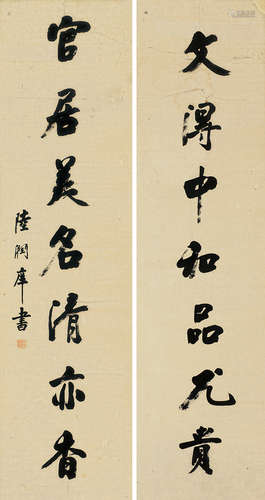 文得中和品尤貴
官居美名清亦香
陸潤庠書